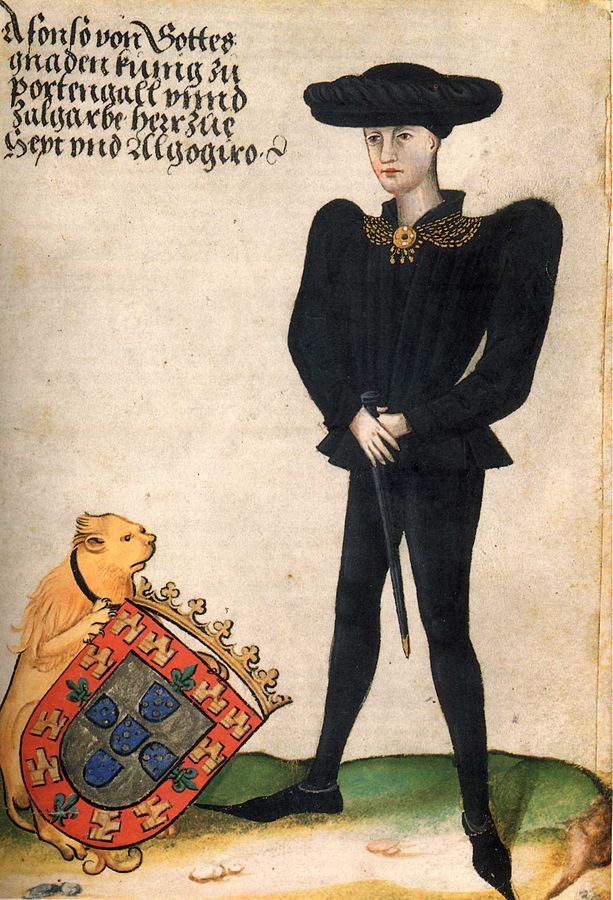 Afonso von Gottes
gnaden kunig zu
Portengall vnnd
zalgarbe herr zue
Sept vnd Algogiro.